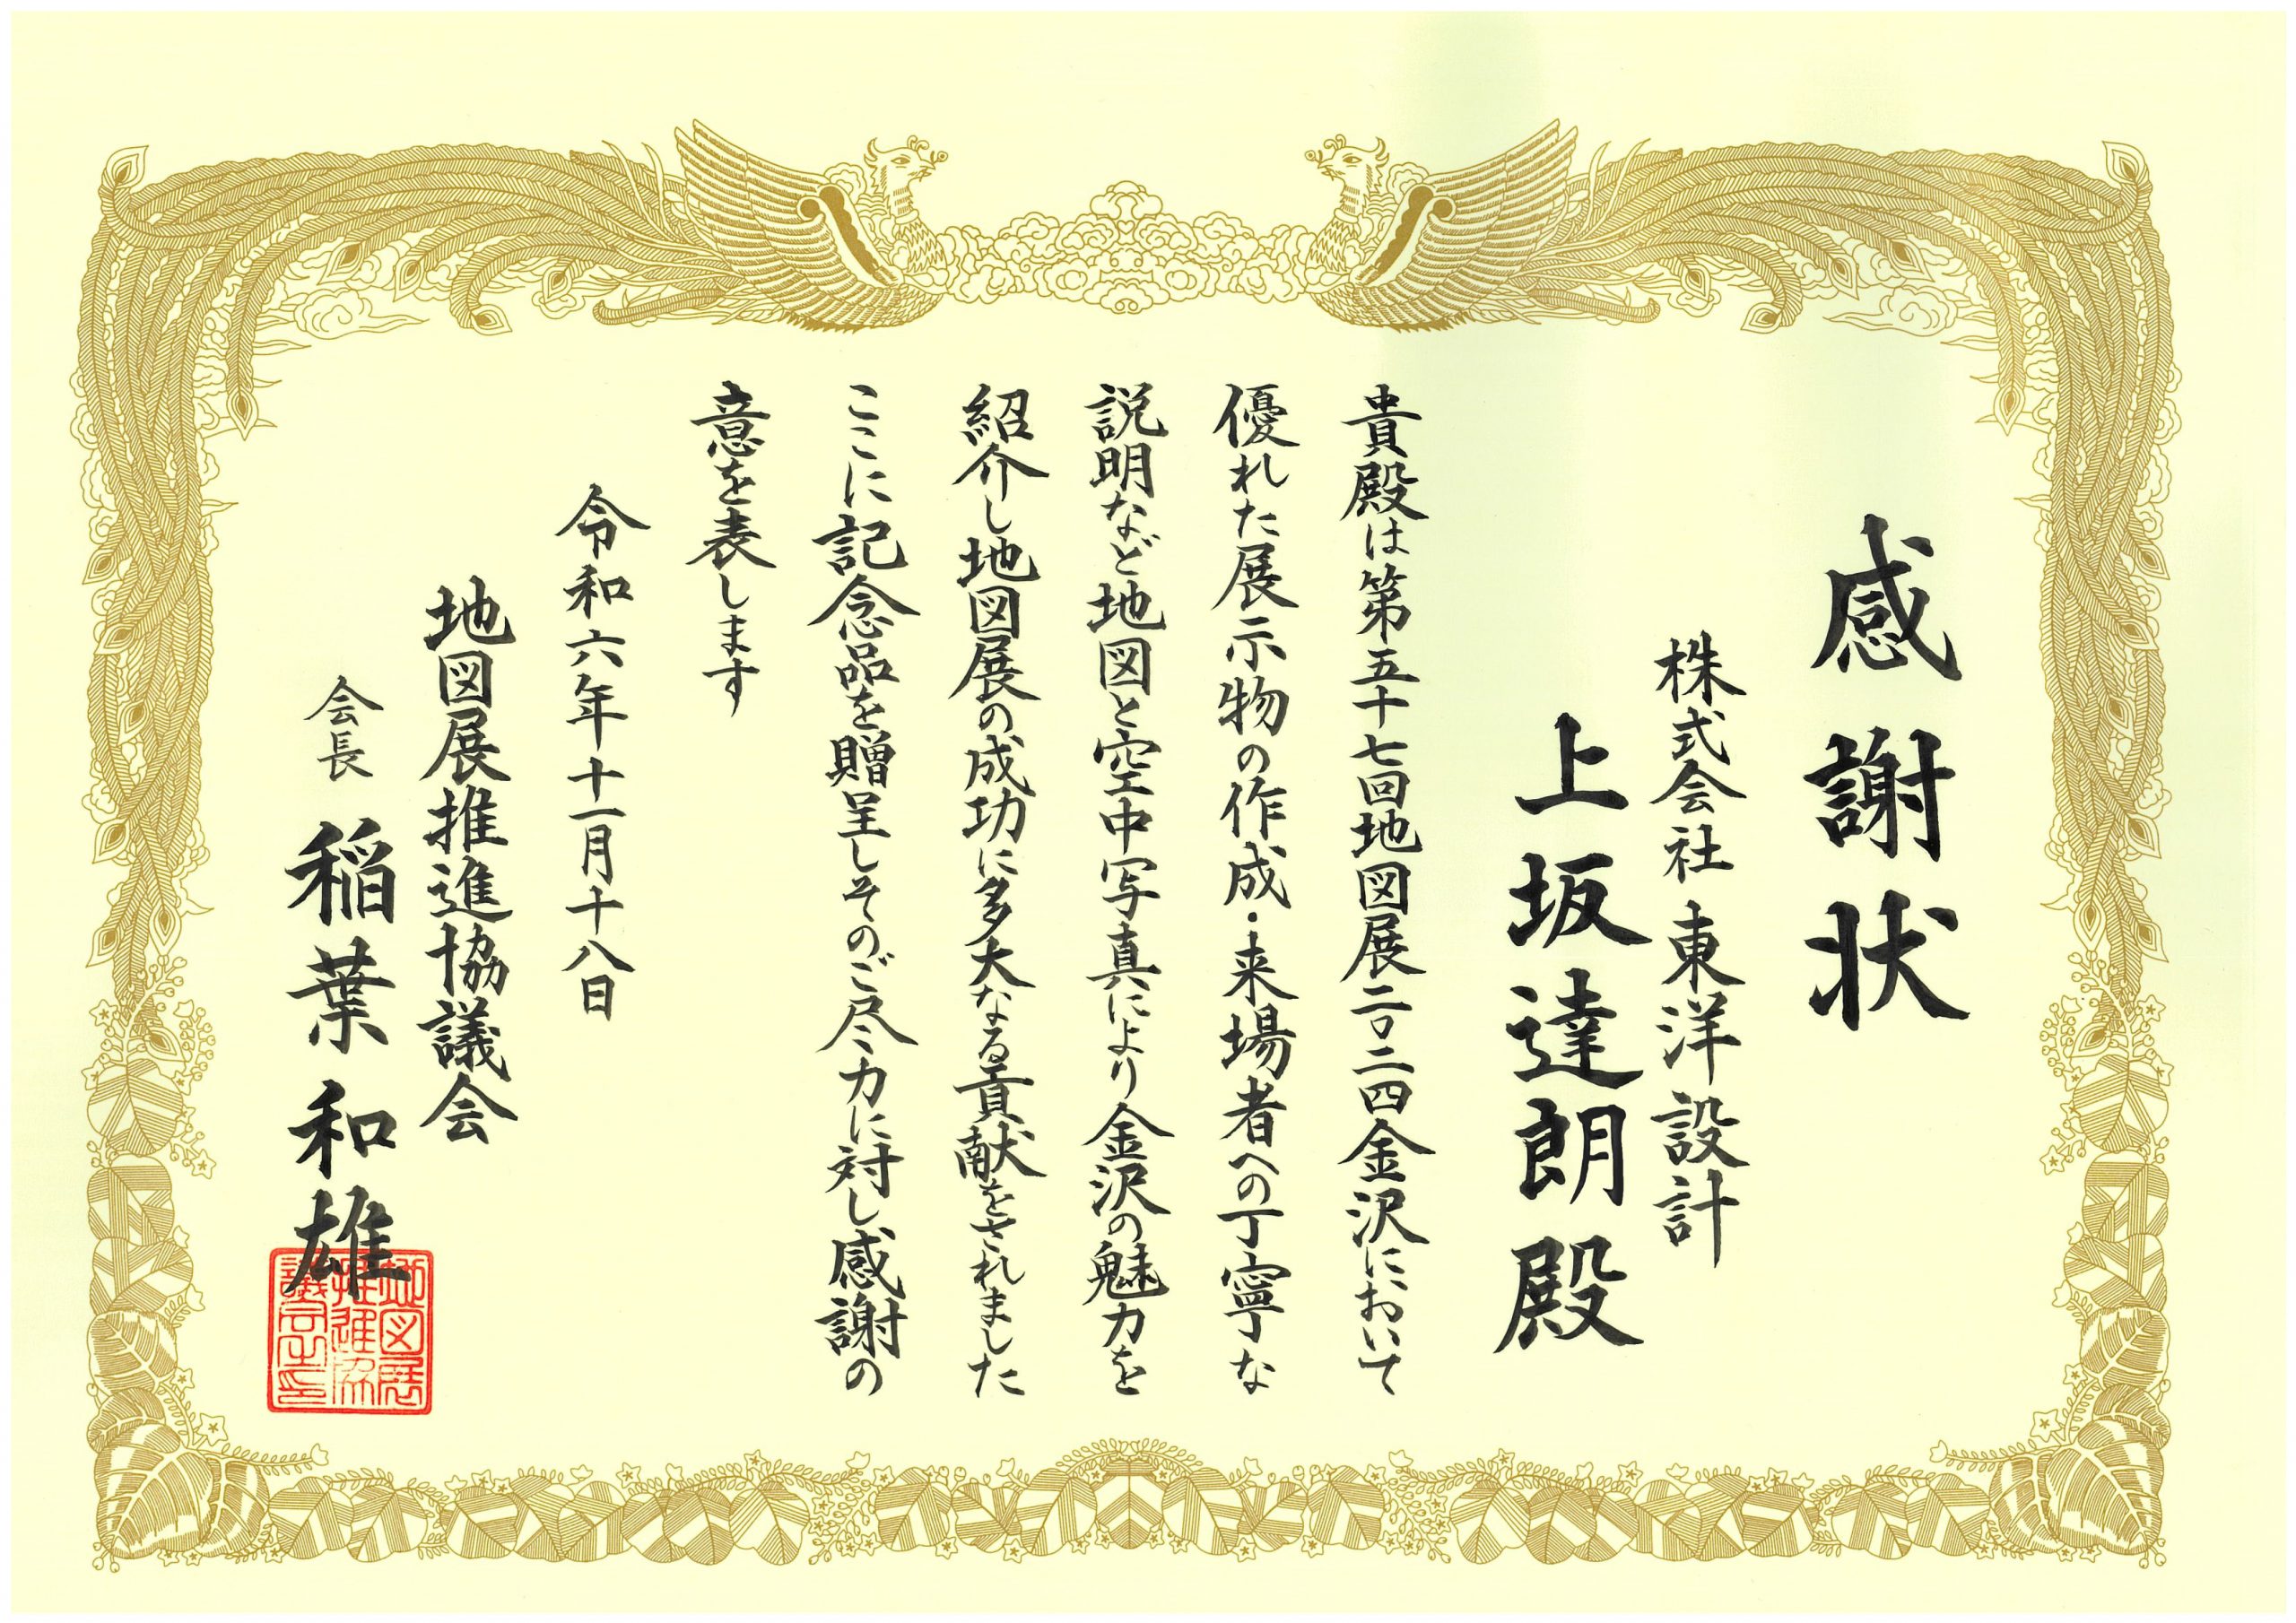 感謝状
株式会社 東洋設計
上坂達朗殿
貴殿は第五十七回地図展二〇二四金沢において
優れた展示物の作成・来場者への丁寧な
説明など地図と空中写真により金沢の魅力を
紹介し地図展の成功に多大なる貢献をされました
ここに記念品を贈呈しそのご尽力に対し感謝の
意を表します
令和六年十一月十八日
地図展推進協議会
会長 稲葉和雄
地図展
推進協
議会之印